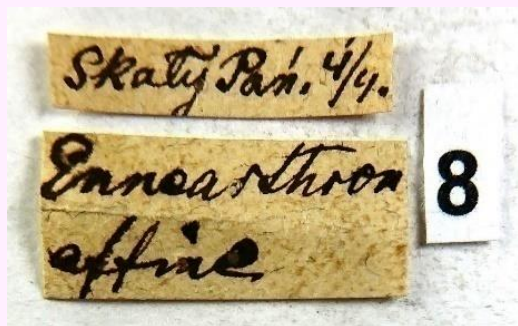 Skały Pań. 4/4.
Ennearthron
affine
8